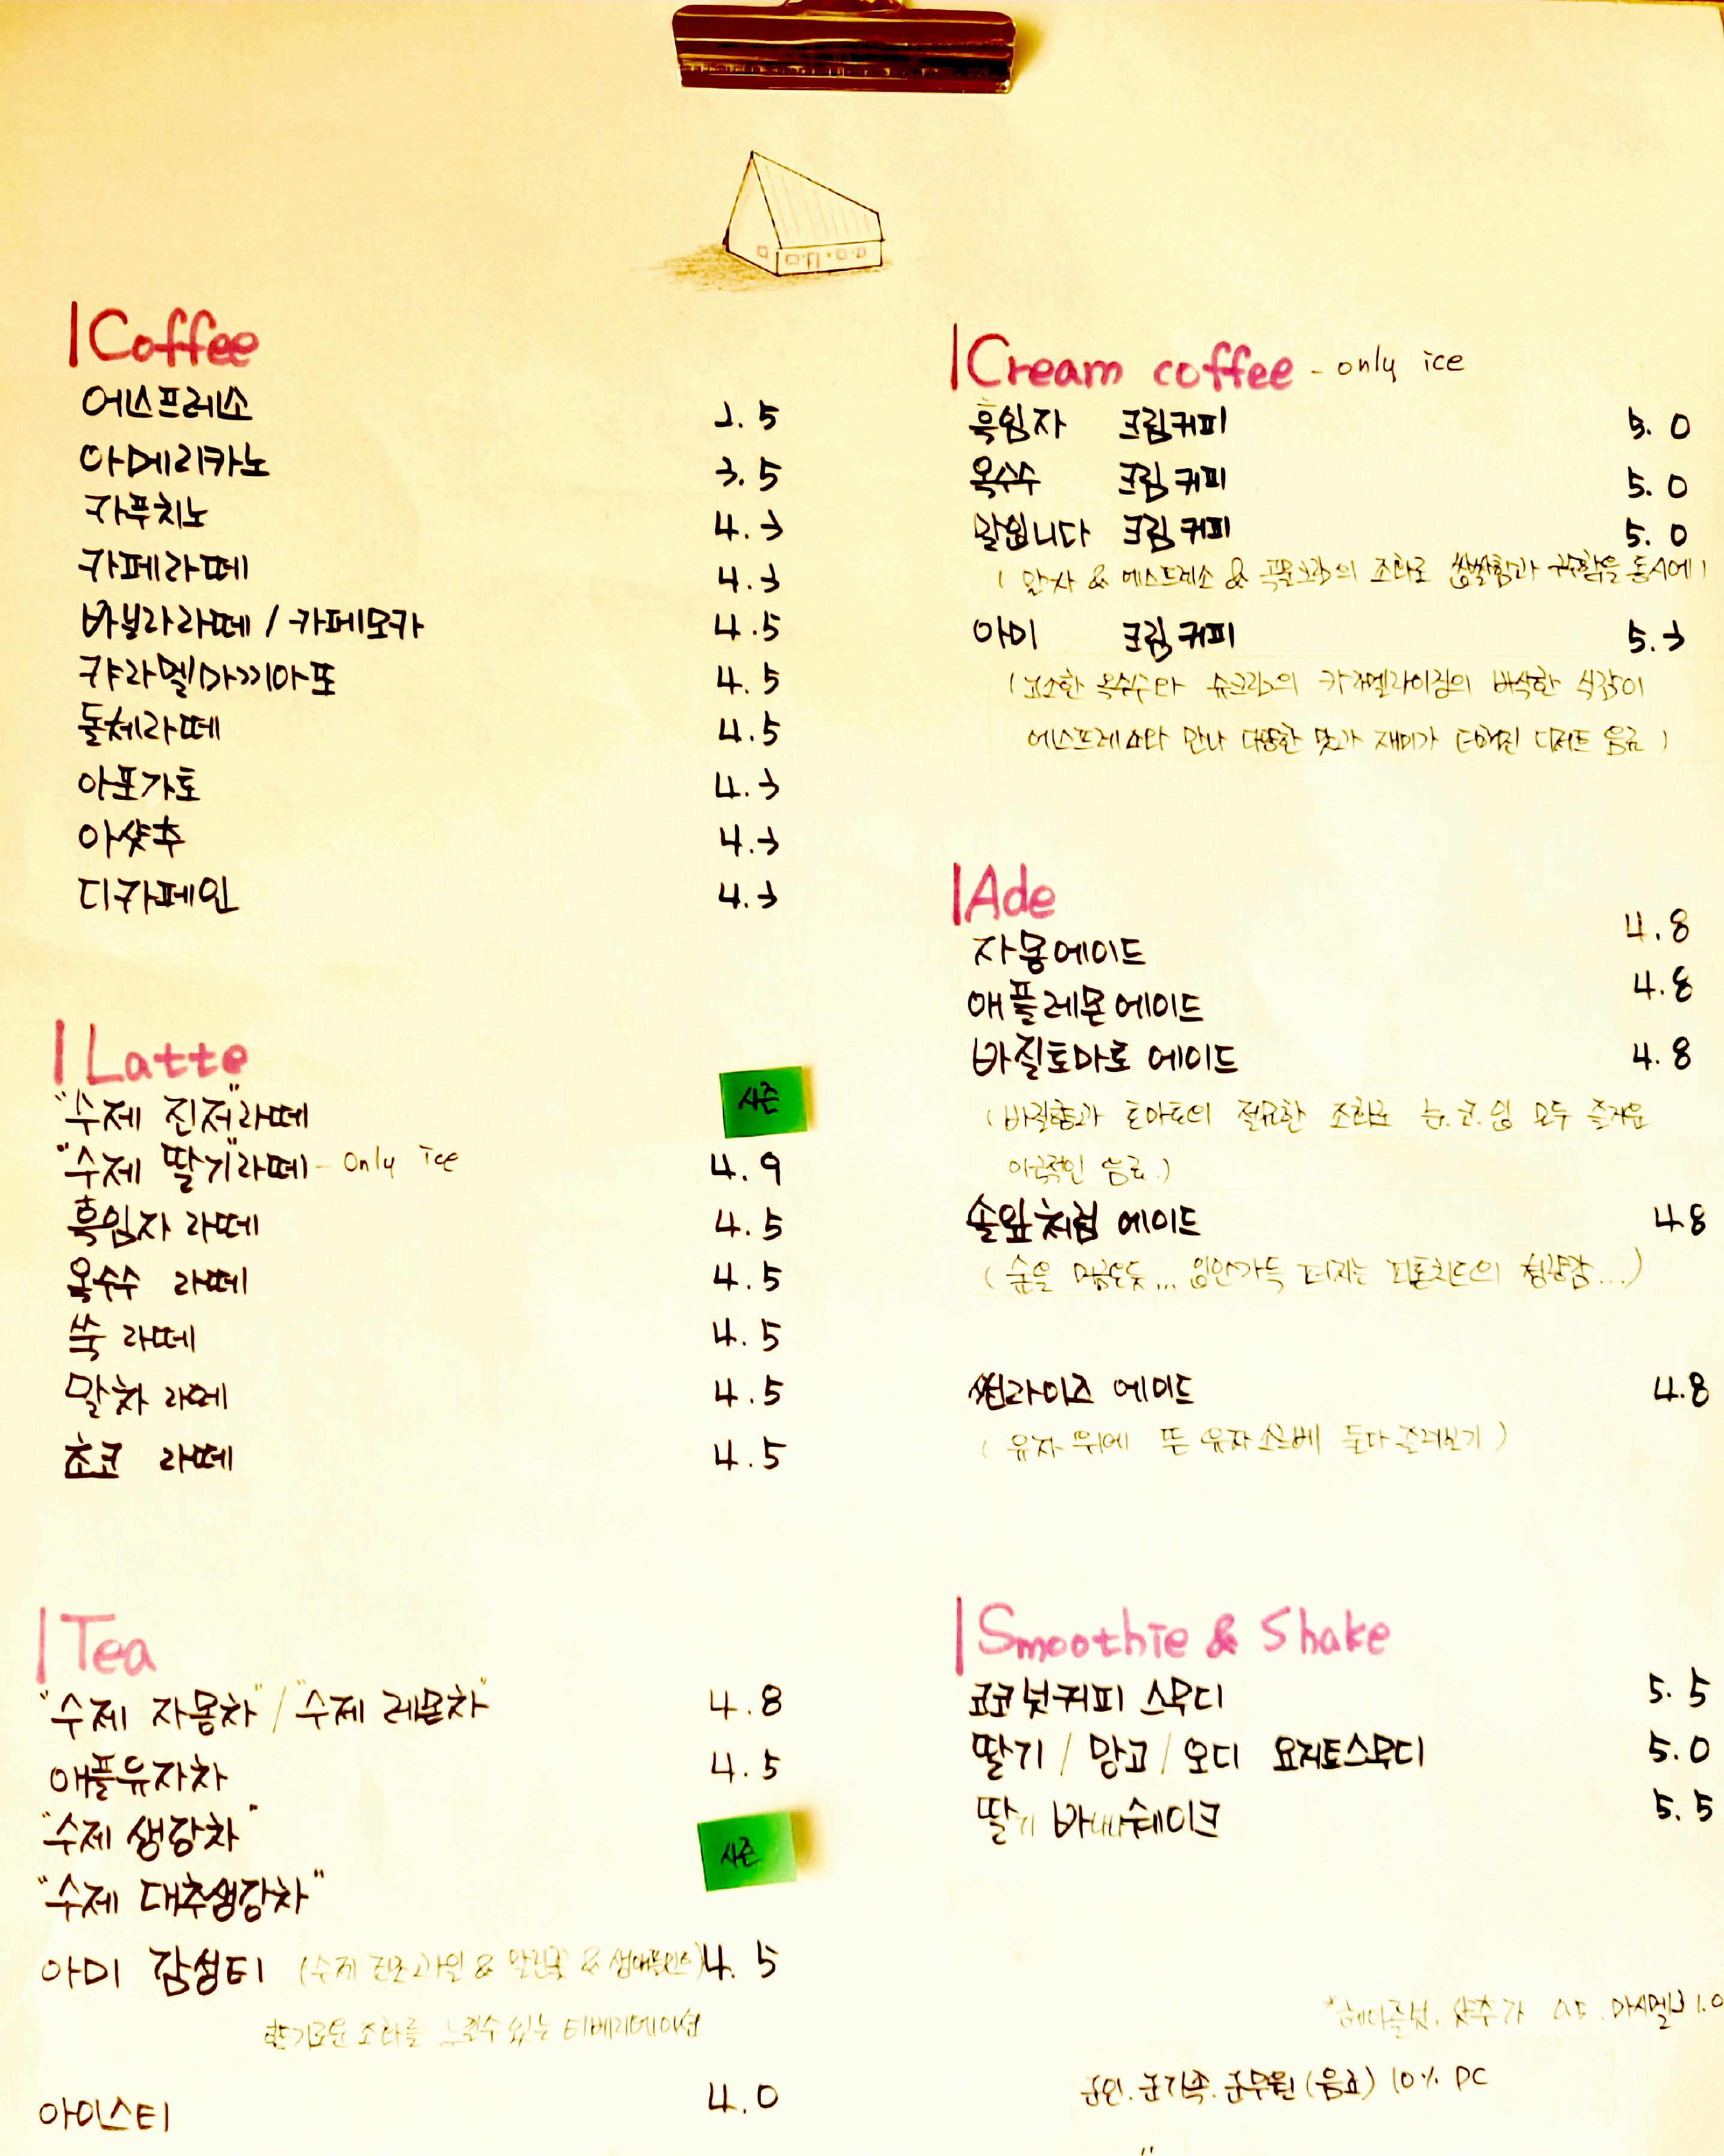 Coffee
에스프레소 2.5
아메리카노 3.5
카푸치노 4.3
카페라떼 4.3
바닐라라떼 / 카페모카 4.5
캬라멜마끼아또 4.5
돌체라떼 4.5
아포가토 4.3
아샷추 4.3
디카페인 4.3
Latte
"수제 진저"라떼 시즌
"수제 딸기"라떼 - only ice 4.9
흑임자 라떼 4.5
옥수수 라떼 4.5
쑥 라떼 4.5
말차 라떼 4.5
초코 라떼 4.5
Tea
"수제 자몽차" / "수제 레몬차" 4.8
애플유자차 4.5
"수제 생강차"
"수제 대추생강차" 시즌
아미 감성티 (수제 건조과일 & 말린꽃 & 생애플민트) 4.5
향기로운 조화를 느낄수 있는 티베리에이션
아이스티 4.0
Cream coffee - only ice
흑임자 크림커피 5.0
옥수수 크림커피 5.0
말입니다 크림커피 5.0
( 말차 & 에스프레소 & 곡물크림의 조화로 쌉쌀함과 구수함을 동시에 )
아미 크림커피 5.3
( 고소한 옥수수와 슈크림의 카라멜라이징의 바삭한 식감이
에스프레소와 만나 다양한 맛과 재미가 더해진 디저트 음료 )
Ade
자몽에이드 4.8
애플레몬에이드 4.8
바질토마토 에이드 4.8
( 바질향과 토마토의 절묘한 조화로 눈.코.입 모두 즐거운
이국적인 음료.)
솔잎처럼 에이드 4.8
( 숲을 머금은듯... 입안가득 퍼지는 피톤치드의 청량감...)
썬라이즈 에이드 4.8
( 유자 위에 뜬 유자 샤베트 둘다 즐겨보기 )
Smoothie & Shake
코코넛커피 스무디 5.5
딸기 / 망고 / 오디 요거트스무디 5.0
딸기 바나나쉐이크 5.5
*헤이즐넛. 샷추가 0.5 .
1.0
군인.군가족.군무원 (음료) 10% DC